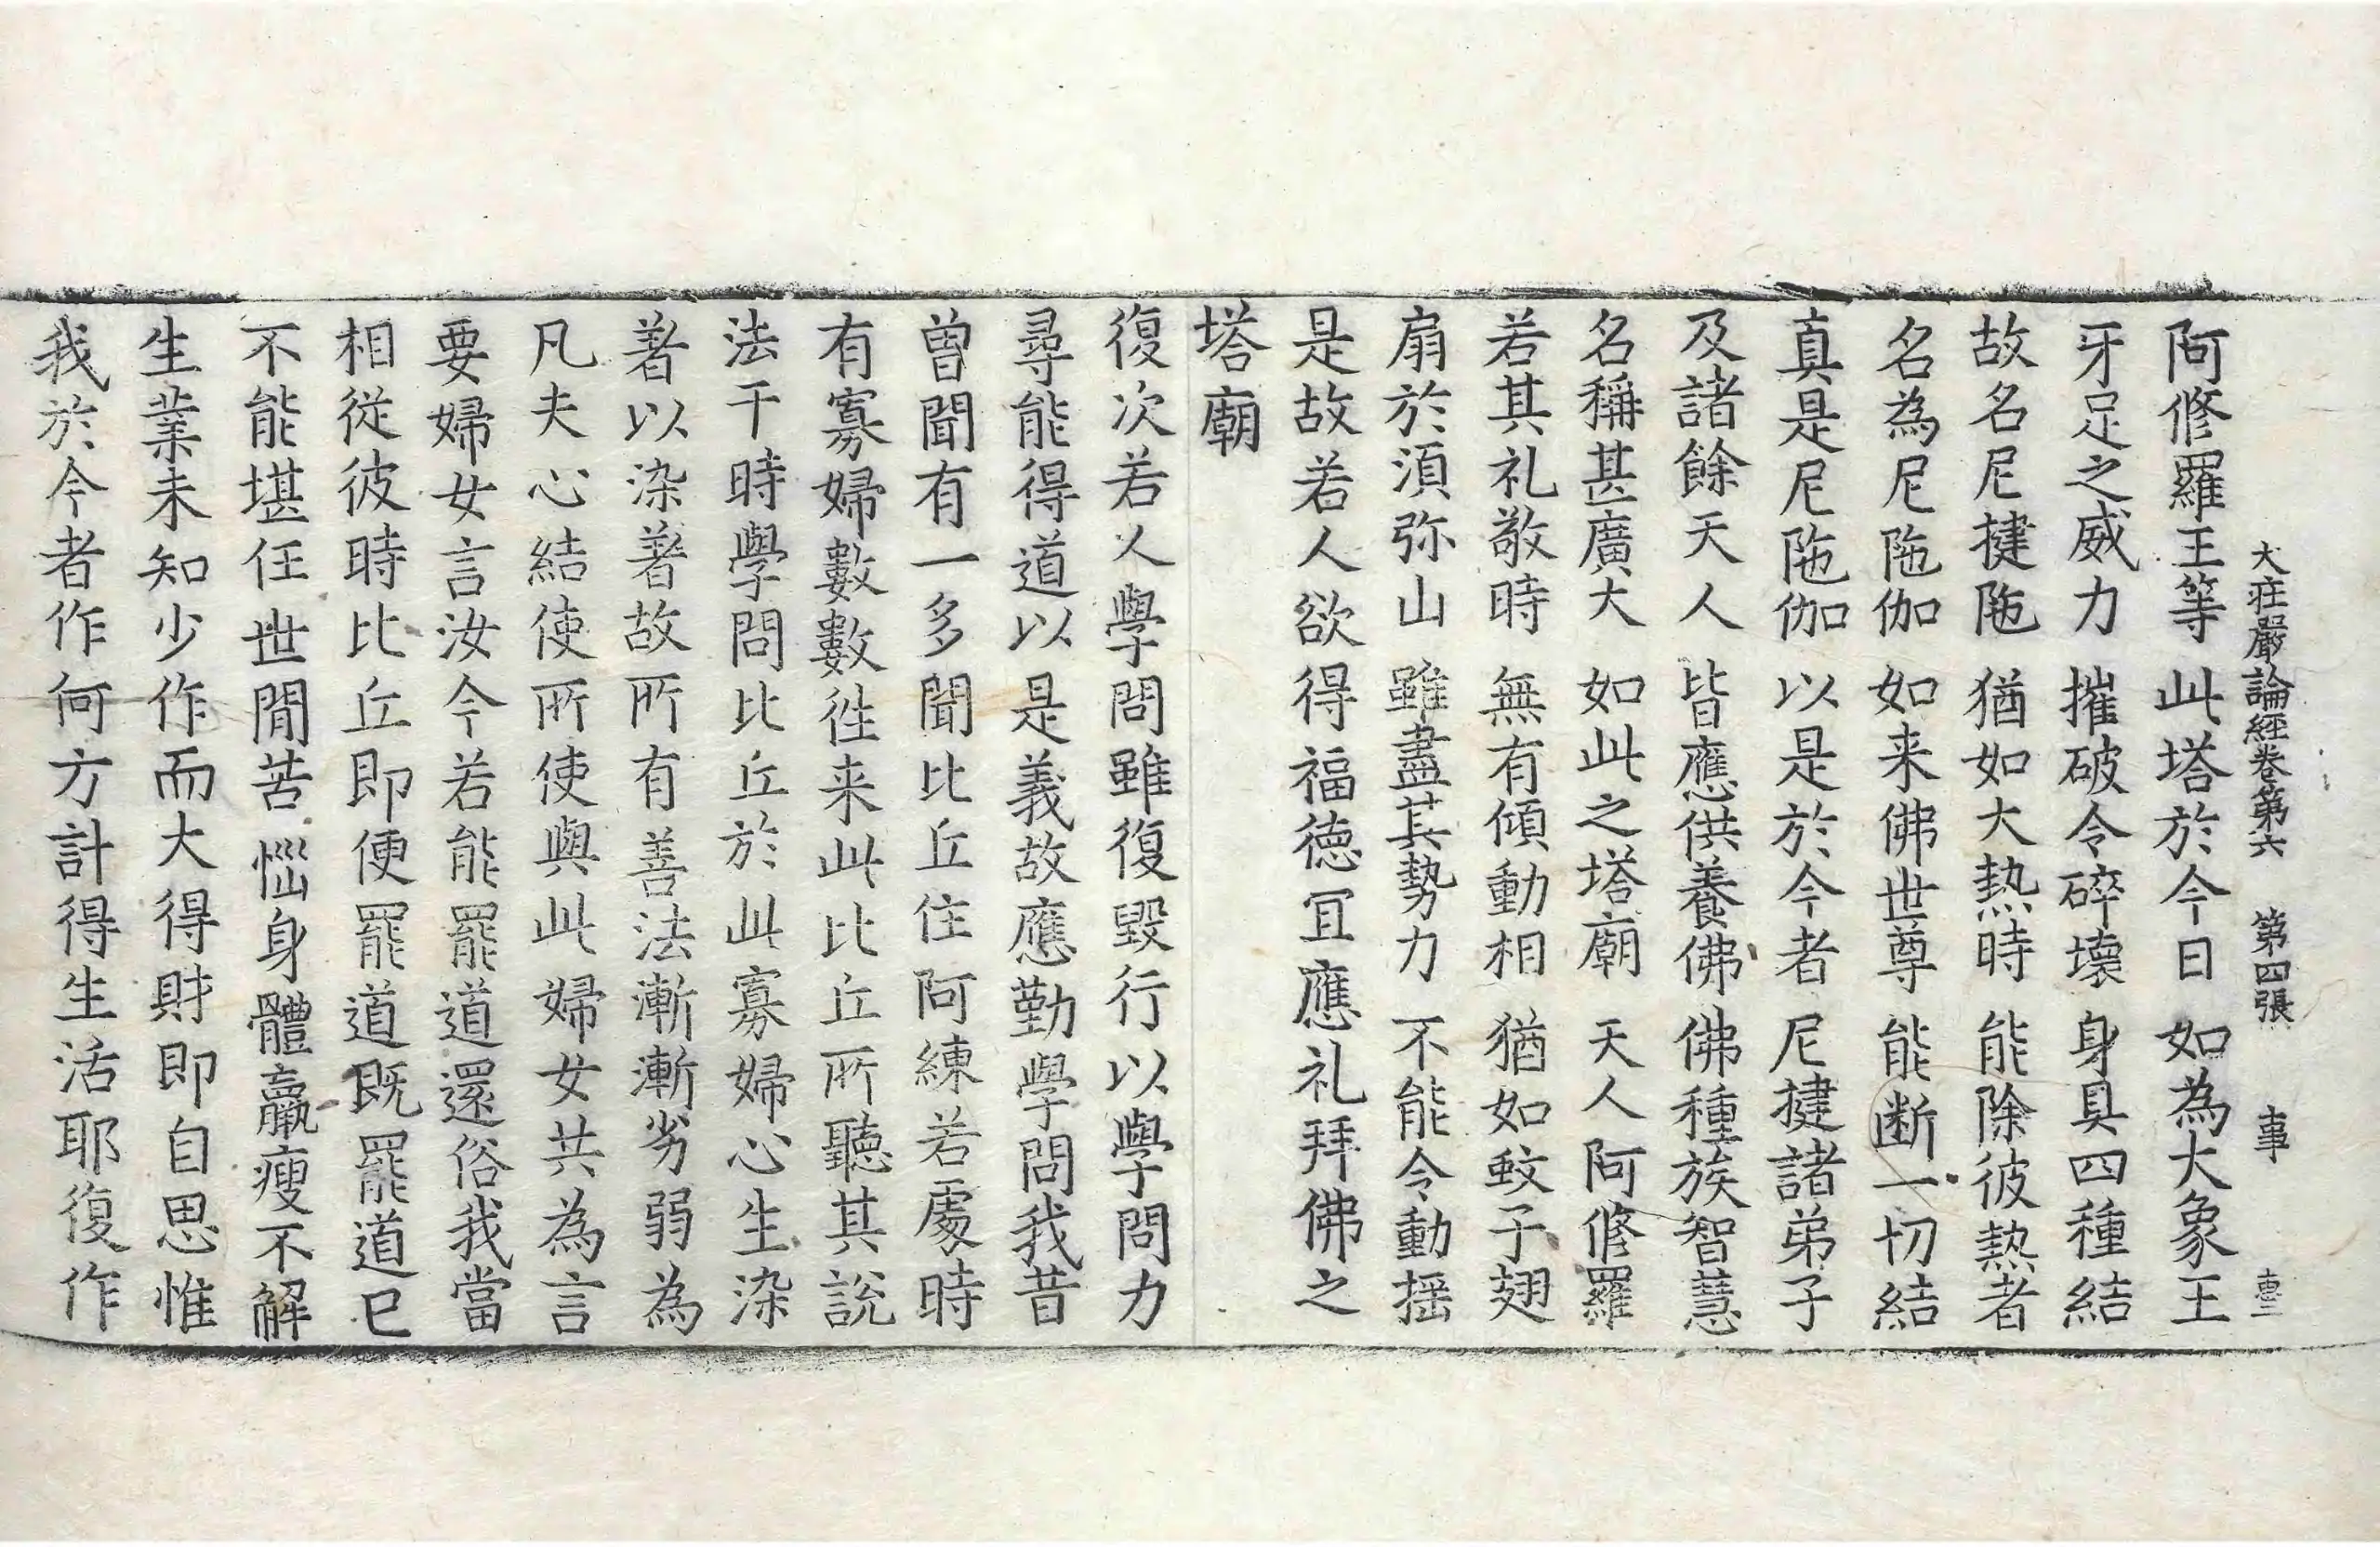 大莊嚴論經卷第六 第四張 事
阿修羅王等 此塔於今日 如為大象王
牙足之威力 摧破令碎壞 身具四種結
故名尼揵陁 猶如大熱時 能除彼熱者
名為尼陁伽 如来佛世尊 能断一切結
真是尼陁伽 以是於今者 尼揵諸弟子
及諸餘天人 皆應供養佛 佛種族智慧
名稱甚廣大 如此之塔廟 天人阿修羅
若其礼敬時 無有傾動相 猶如蚊子翅
扇於湏弥山 雖盡其勢力 不能令動揺
是故若人欲得福德冝應礼拜佛之
塔廟
復次若人學問雖復毀行以學問力
尋能得道以是義故應勤學問我昔
曾聞有一多聞比丘住阿練若處時
有寡婦數數往来此比丘所聽其說
法于時學問比丘於此寡婦心生染
著以染著故所有善法漸漸劣弱為
凡夫心結使所使與此婦女共為言
要婦女言汝今若能罷道還俗我當
相從彼時比丘即便罷道既罷道已
不能堪任世間苦惱身體羸瘦不解
生業未知少作而大得財即自思惟
我於今者作何方計得生活耶復作